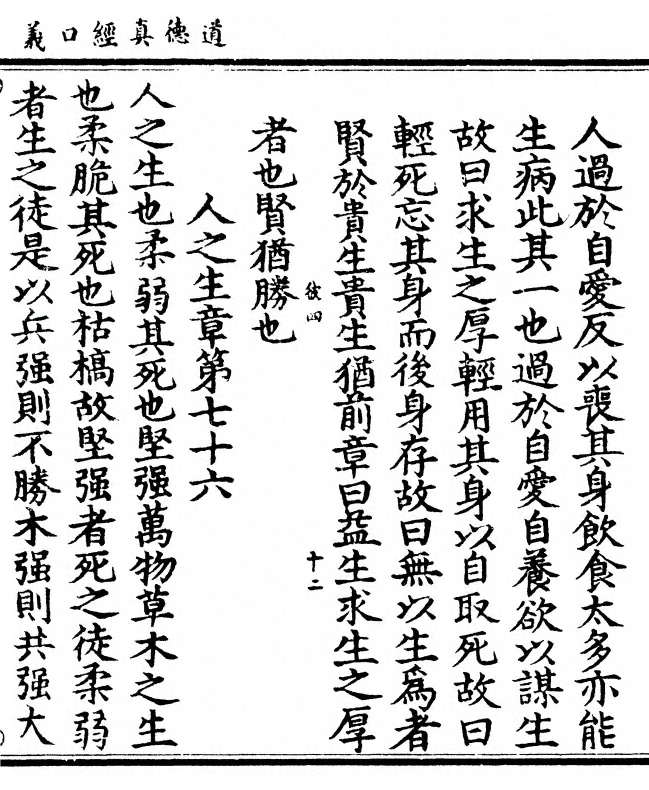 道德真經口義
人過於自愛反以喪其身飲食太多亦能
生病此其一也過於自愛自養欲以謀生
故曰求生之厚輕用其身以自取死故曰
輕死忘其身而後身存故曰無以生爲者
賢於貴生貴生猶前章曰益生求生之厚
彼四
十二
者也賢猶勝也
人之生章第七十六
人之生也柔弱其死也堅强萬物草木之生
也柔脆其死也枯槁故堅强者死之徒柔弱
者生之徒是以兵强則不勝木强則共强大